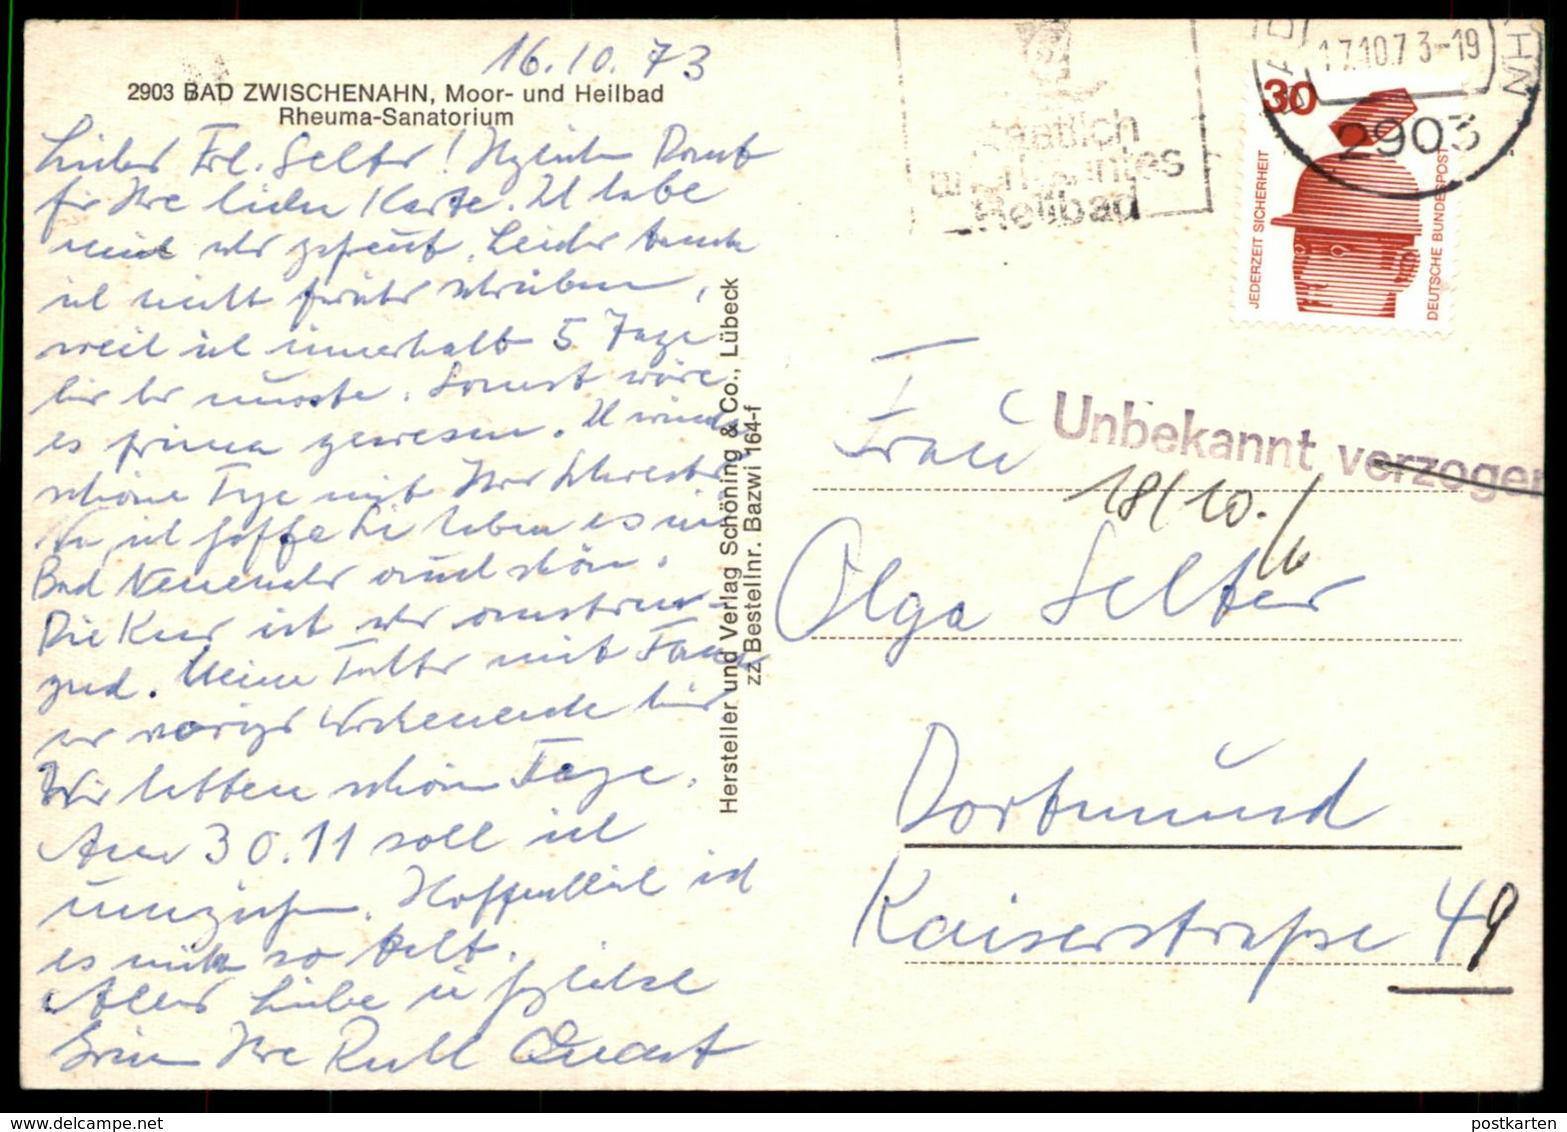 16.10.73
2903 BAD ZWISCHENAHN, Moor- und Heilbad
Rheuma-Sanatorium
Liebes Frl. Selter! Herzlichen Dank
für Ihre lieben Karte. Ich habe
mich sehr gefreut. Leider konnte
ich nicht früher schreiben,
weil ich innerhalb 5 Tage
hier sein musste. Sonst wäre
es prima gewesen. Ich wünsche
schöne Tage mit Ihrer Schwester
Na, ich hoffe Sie haben es in
Bad Neuenahr auch schön.
Die Kur ist sehr anstren-
gend. Meine Tochter mit Fam.
war voriges Wochenende hier
Wir hatten schöne Tage.
Am 30.11 soll ich
umziehen. Hoffentlich ist
es nicht so kalt.
Alles Liebe u herzliche
Grüße Ihre Ruth Quast
Hersteller und Verlag Schöning & Co., Lübeck
zz Bestellnr. Bazwi 164-f
Staatlich
anerkanntes
Heilbad
17.10.73-19
2903
30
JEDERZEIT SICHERHEIT
DEUTSCHE BUNDESPOST
Unbekannt verzogen
18/10.
Frau
Olga Selter
Dortmund
Kaiserstraße 49
postkarten